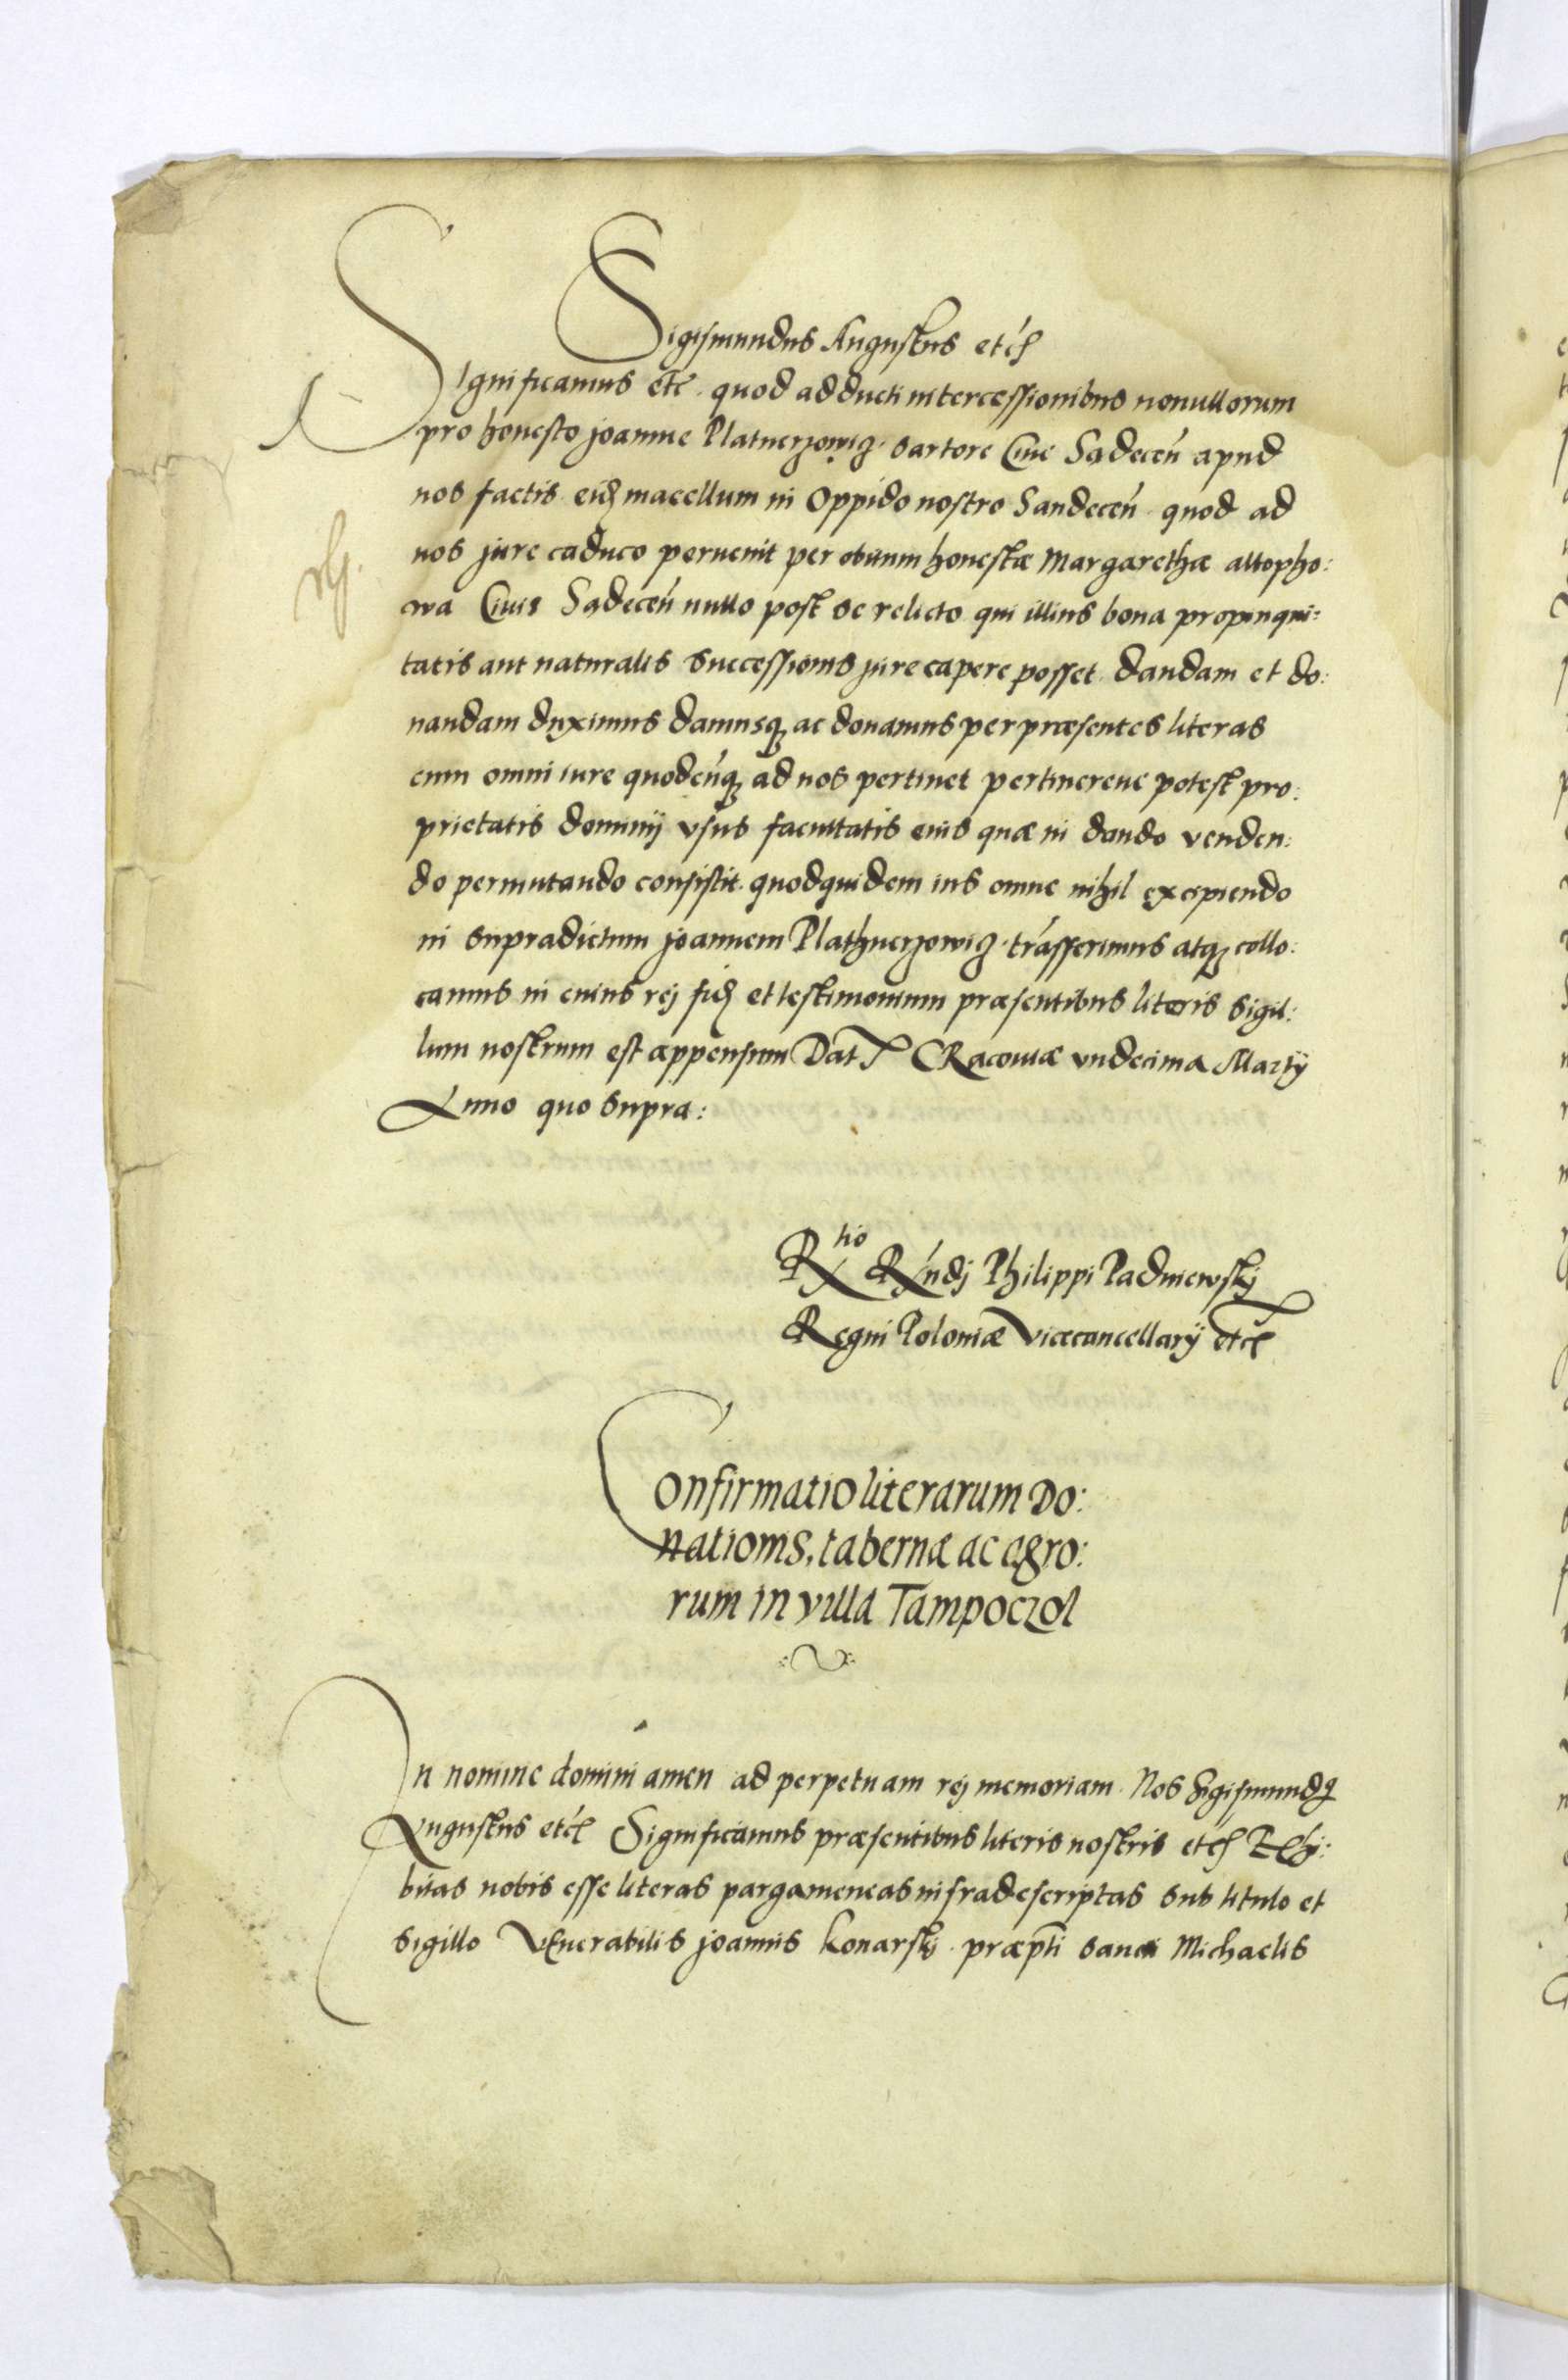 Sigismundus Augustus etc̃
Significamus etc̃. quod adducti intercessionibus nonullorum
pro honesto joanne Platnerzowicz. sartore Cive Sadecen̄ apud
nos factis. eid macellum in oppido nostro Sandecen̄. quod ad
nos jure caduco pervenit per obitum honestæ Margarethæ altopho:
wa Civis Sadecen̄ nullo post se relicto qui illius bona propinqui:
tatis aut naturalis successionis jure capere posset. dandam et do:
nandam duximus damusq ac donamus per præsentes literas
cum omni iure quodcun̄q ad nos pertinet pertinereve potest pro:
prietatis dominij usus facultatis eius quæ in dando venden:
do permutando consistit. quodquidem ius omne nihil excipiendo
in supradictum joannem Plathnerzowicz. trāsferimus atq collo:
camus in cuius rej fid et testimonium præsentibus literis sigil:
lum nostrum est appensum Dat CRacoviæ undecima Martij
Anno quo supra:
Rtio Rn̄dj Philippi Padniewskj
Regni Poloniæ Vicecancellarij etc̃
Confirmatio literarum Do:
nationis, tabernæ ac agro:
rum in villa Tampoczol
In nomine domini amen ad perpetuam rej memoriam. Nos Sigismundꝰ
Augustus etc̃ Significamus præsentibus literis nostris etc̃ Exhi:
bitas nobis esse literas pargameneas infradescriptas sub titulo et
sigillo VEnerabilis joannis Konarskj. præpti sancti Michaelis